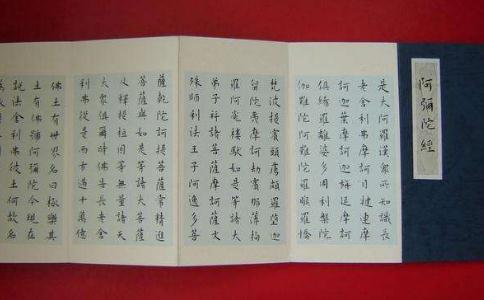 阿彌陀經
是大阿羅漢眾所知識長
老舍利弗摩訶目揵連摩
訶迦葉摩訶迦旃延摩訶
俱絺羅離婆多周利槃陀
伽難陀阿難陀羅睺羅憍
梵波提賓頭盧頗羅墮迦
留陀夷摩訶劫賓那薄拘
羅阿㝹樓馱如是等諸大
弟子并諸菩薩摩訶薩文
殊師利法王子阿逸多菩
薩乾陀訶提菩薩常精進
菩薩與如是等諸大菩薩
及釋提桓因等無量諸天
大眾俱爾時佛告長老舍
利弗從是西方過十萬億
佛土有世界名曰極樂其
土有佛號阿彌陀今現在
說法舍利弗彼土何故名